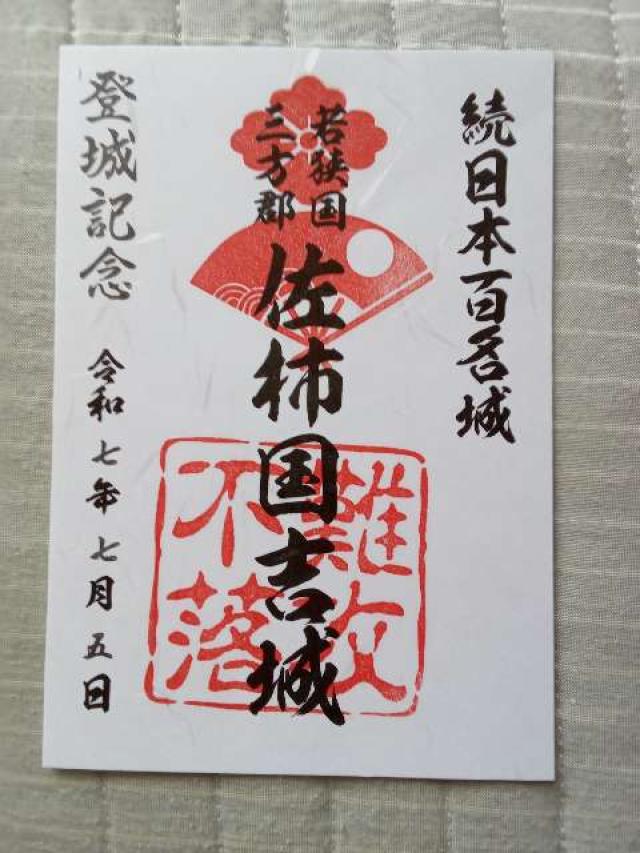 続日本百名城
若狭国
三方郡
佐柿国吉城
難攻
不落
登城記念
令和七年七月五日